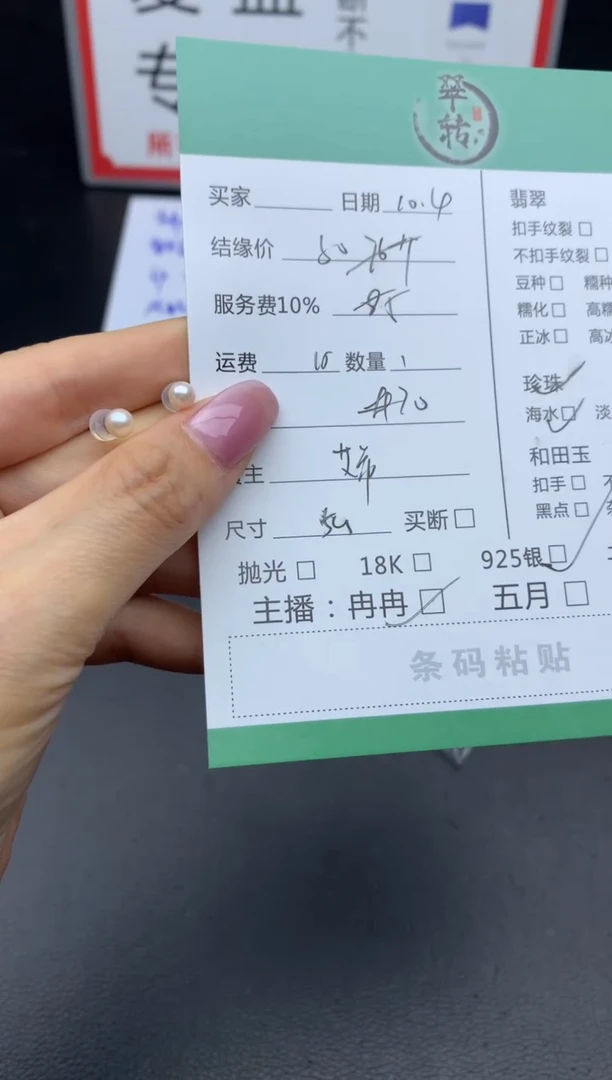 不
专
翠
转
买家 日期 10.4
结缘价 60
服务费10%
运费 10 数量 1
70
主
尺寸 买断
抛光 18K 925银
主播：冉冉 五月
条码粘贴
翡翠
扣手纹裂
不扣手纹裂
豆种 糯种
糯化 高糯
正冰 高冰
珍珠
海水 淡
和田玉
扣手 不
黑点